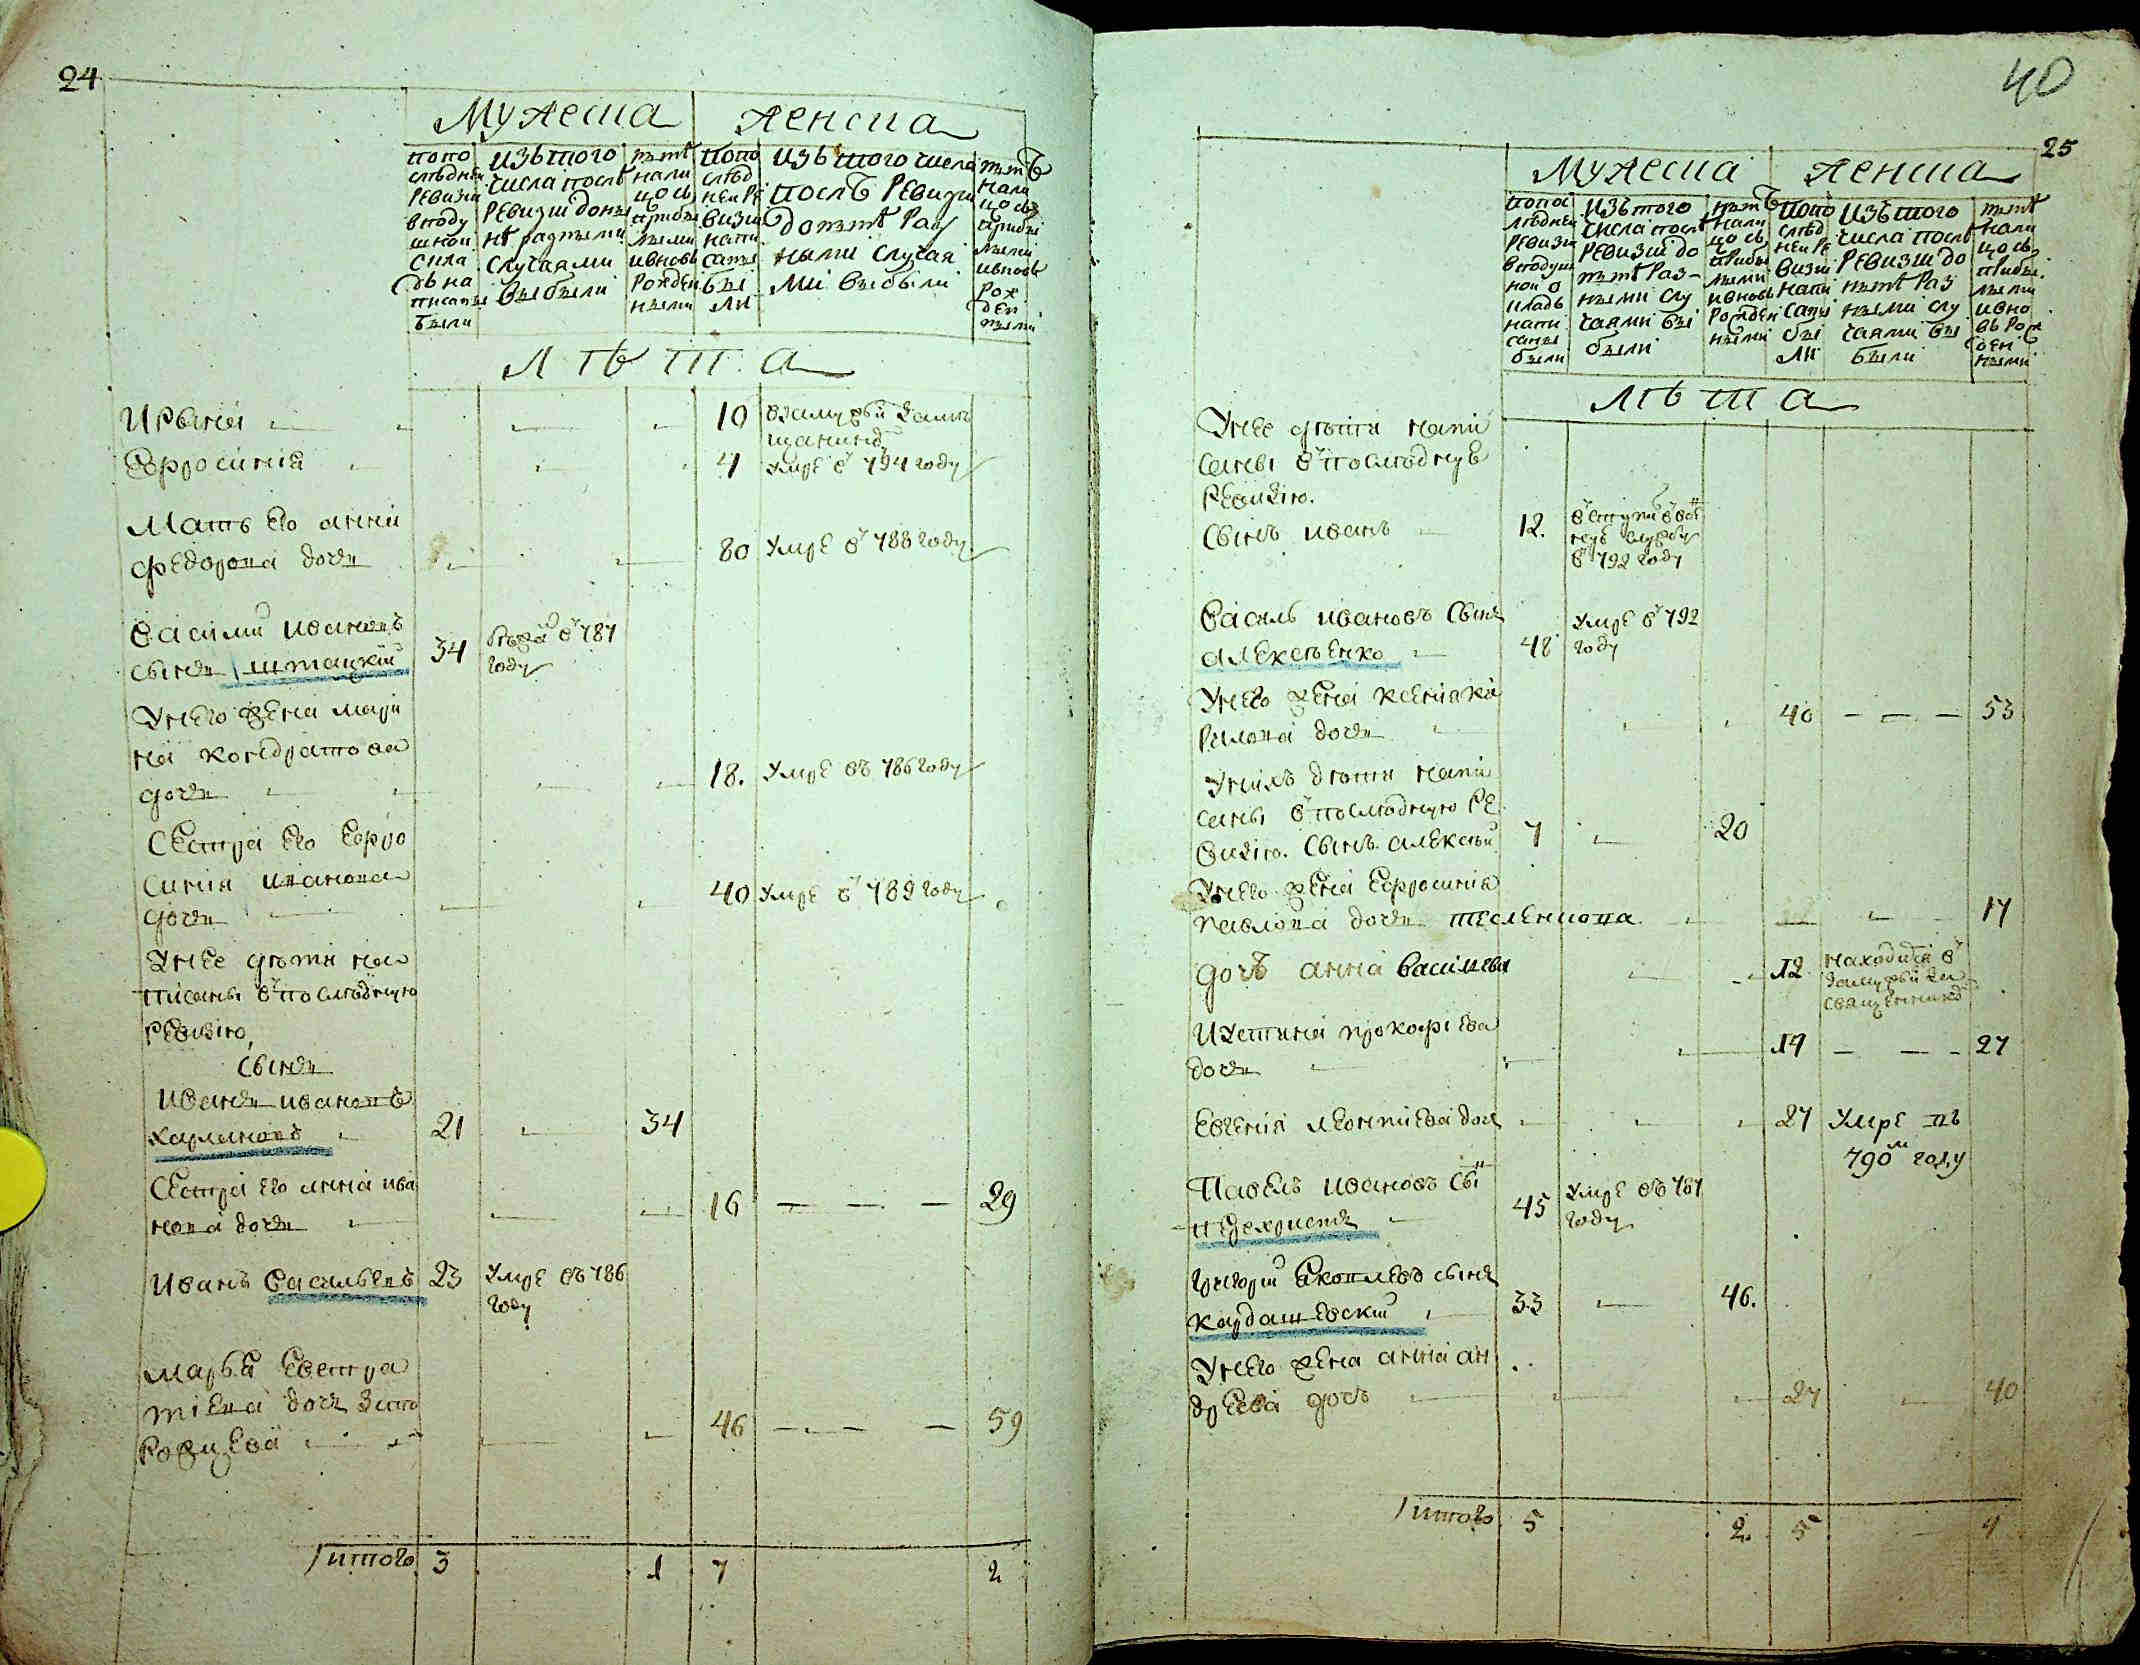 24
Мужеска Женска
попо слѣдней ревизіи в подушной склад написаны были
изъ того числа послѣ ревизіи до нынѣ разными случаями выбыли
нынѣ на лицо съ прибылыми и вновь рожденными
попо слѣдней ревизіи написаны были
изъ того числа послѣ ревизіи до нынѣ разными случаями выбыли
нынѣ на лицо съ прибылыми и вновь рожденными
Лѣта
Ирына 10 взамужьи
Ефросинія 4 умре в 794 году
Мать его анна
федорова дочь 80 умре в 788 году
Василий Ивановъ
сынъ штацкій 34 787 году
У него жена мари
на кондратова
дочь 18. умре въ 786 году
Сестра его Ефро
синия иванова
дочь 40 умре в 789 году
У нее дѣти на
писаны в последную
ревизію,
сынъ
Иванъ ивановъ
Харламовъ 21 34
Сестра его анна ива
нова дочь 16 — — — 29
Иванъ Васильевъ 23 умре въ 786
году
Марья Евстра
тіева дочь
46 — — — 59
Итого 3 1 7 2
40
25
Мужеска Женска
попослѣдней ревизіи в подушной окладъ написаны были
изъ того числа послѣ ревизіи до нынѣ разными случаями выбыли
нынѣ на лицо съ прибылыми и вновь рожденными
попо слѣдней ревизіи написаны были
изъ того числа послѣ ревизіи до нынѣ разными случаями выбыли
нынѣ на лицо съ прибылыми и вновь рожденными
Лѣта
У нее дѣти напи
саны в последную
ревизію.
Сынъ иванъ 12. в службу
в 792 году
Василь ивановъ сынъ
алексѣенко 48 умре в 792
году
У него жена ксения ки
рилова дочь 40 — — — 53
У нихъ дѣти напи
саны в последную ре
визію. Сынъ алексѣй 7 20
У него жена Ефросиния
павлова дочь тесленкова 17
дочь анна васильева 12 находится в
замужьи за
священником
Устина прокофіева
дочь 14 — — — 27
Евгения леонтиева дочь 27 умре въ
790м году
Павелъ ивановъ сын
перехристъ 45 умре въ 787
году
Григорій Яковлевъ сынъ
кардашевский 33 46.
У него жена анна ан
дреева дочь 27 40
Итого 5 2. 5 4